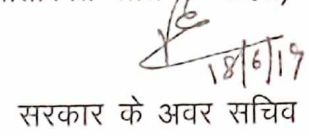 18/6/19
सरकार के अवर सचिव